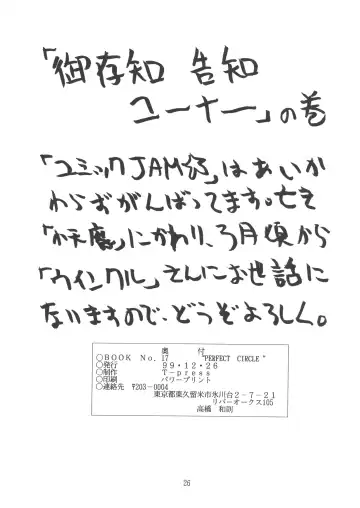 「御存知 告知
コーナー」の巻
「コミックJAM」はあいか
わらずがんばってます。
にかわり、3月頃から
「ウインクル」さんにお世話に
なりますので、どうぞよろしく。
奥 付
○BOOK No.17 "PERFECT CIRCLE"
○発行 99・12・26
○制作 T-press
○印刷 パワープリント
○連絡先 〒203-0004
東京都東久留米市氷川台2-7-21
リバーオークス105
高橋 和則
26